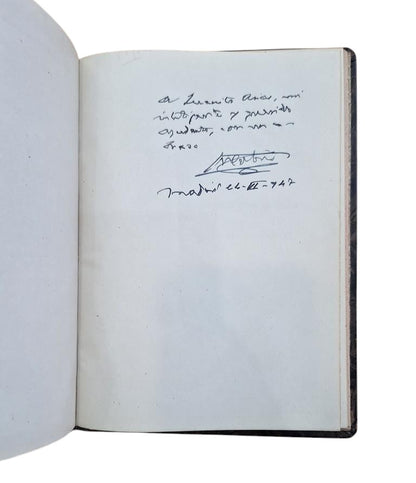 A Juanito Arias, mi
inteligente y querido
ayudante, con un a-
brazo
Madrid 22-VI-947